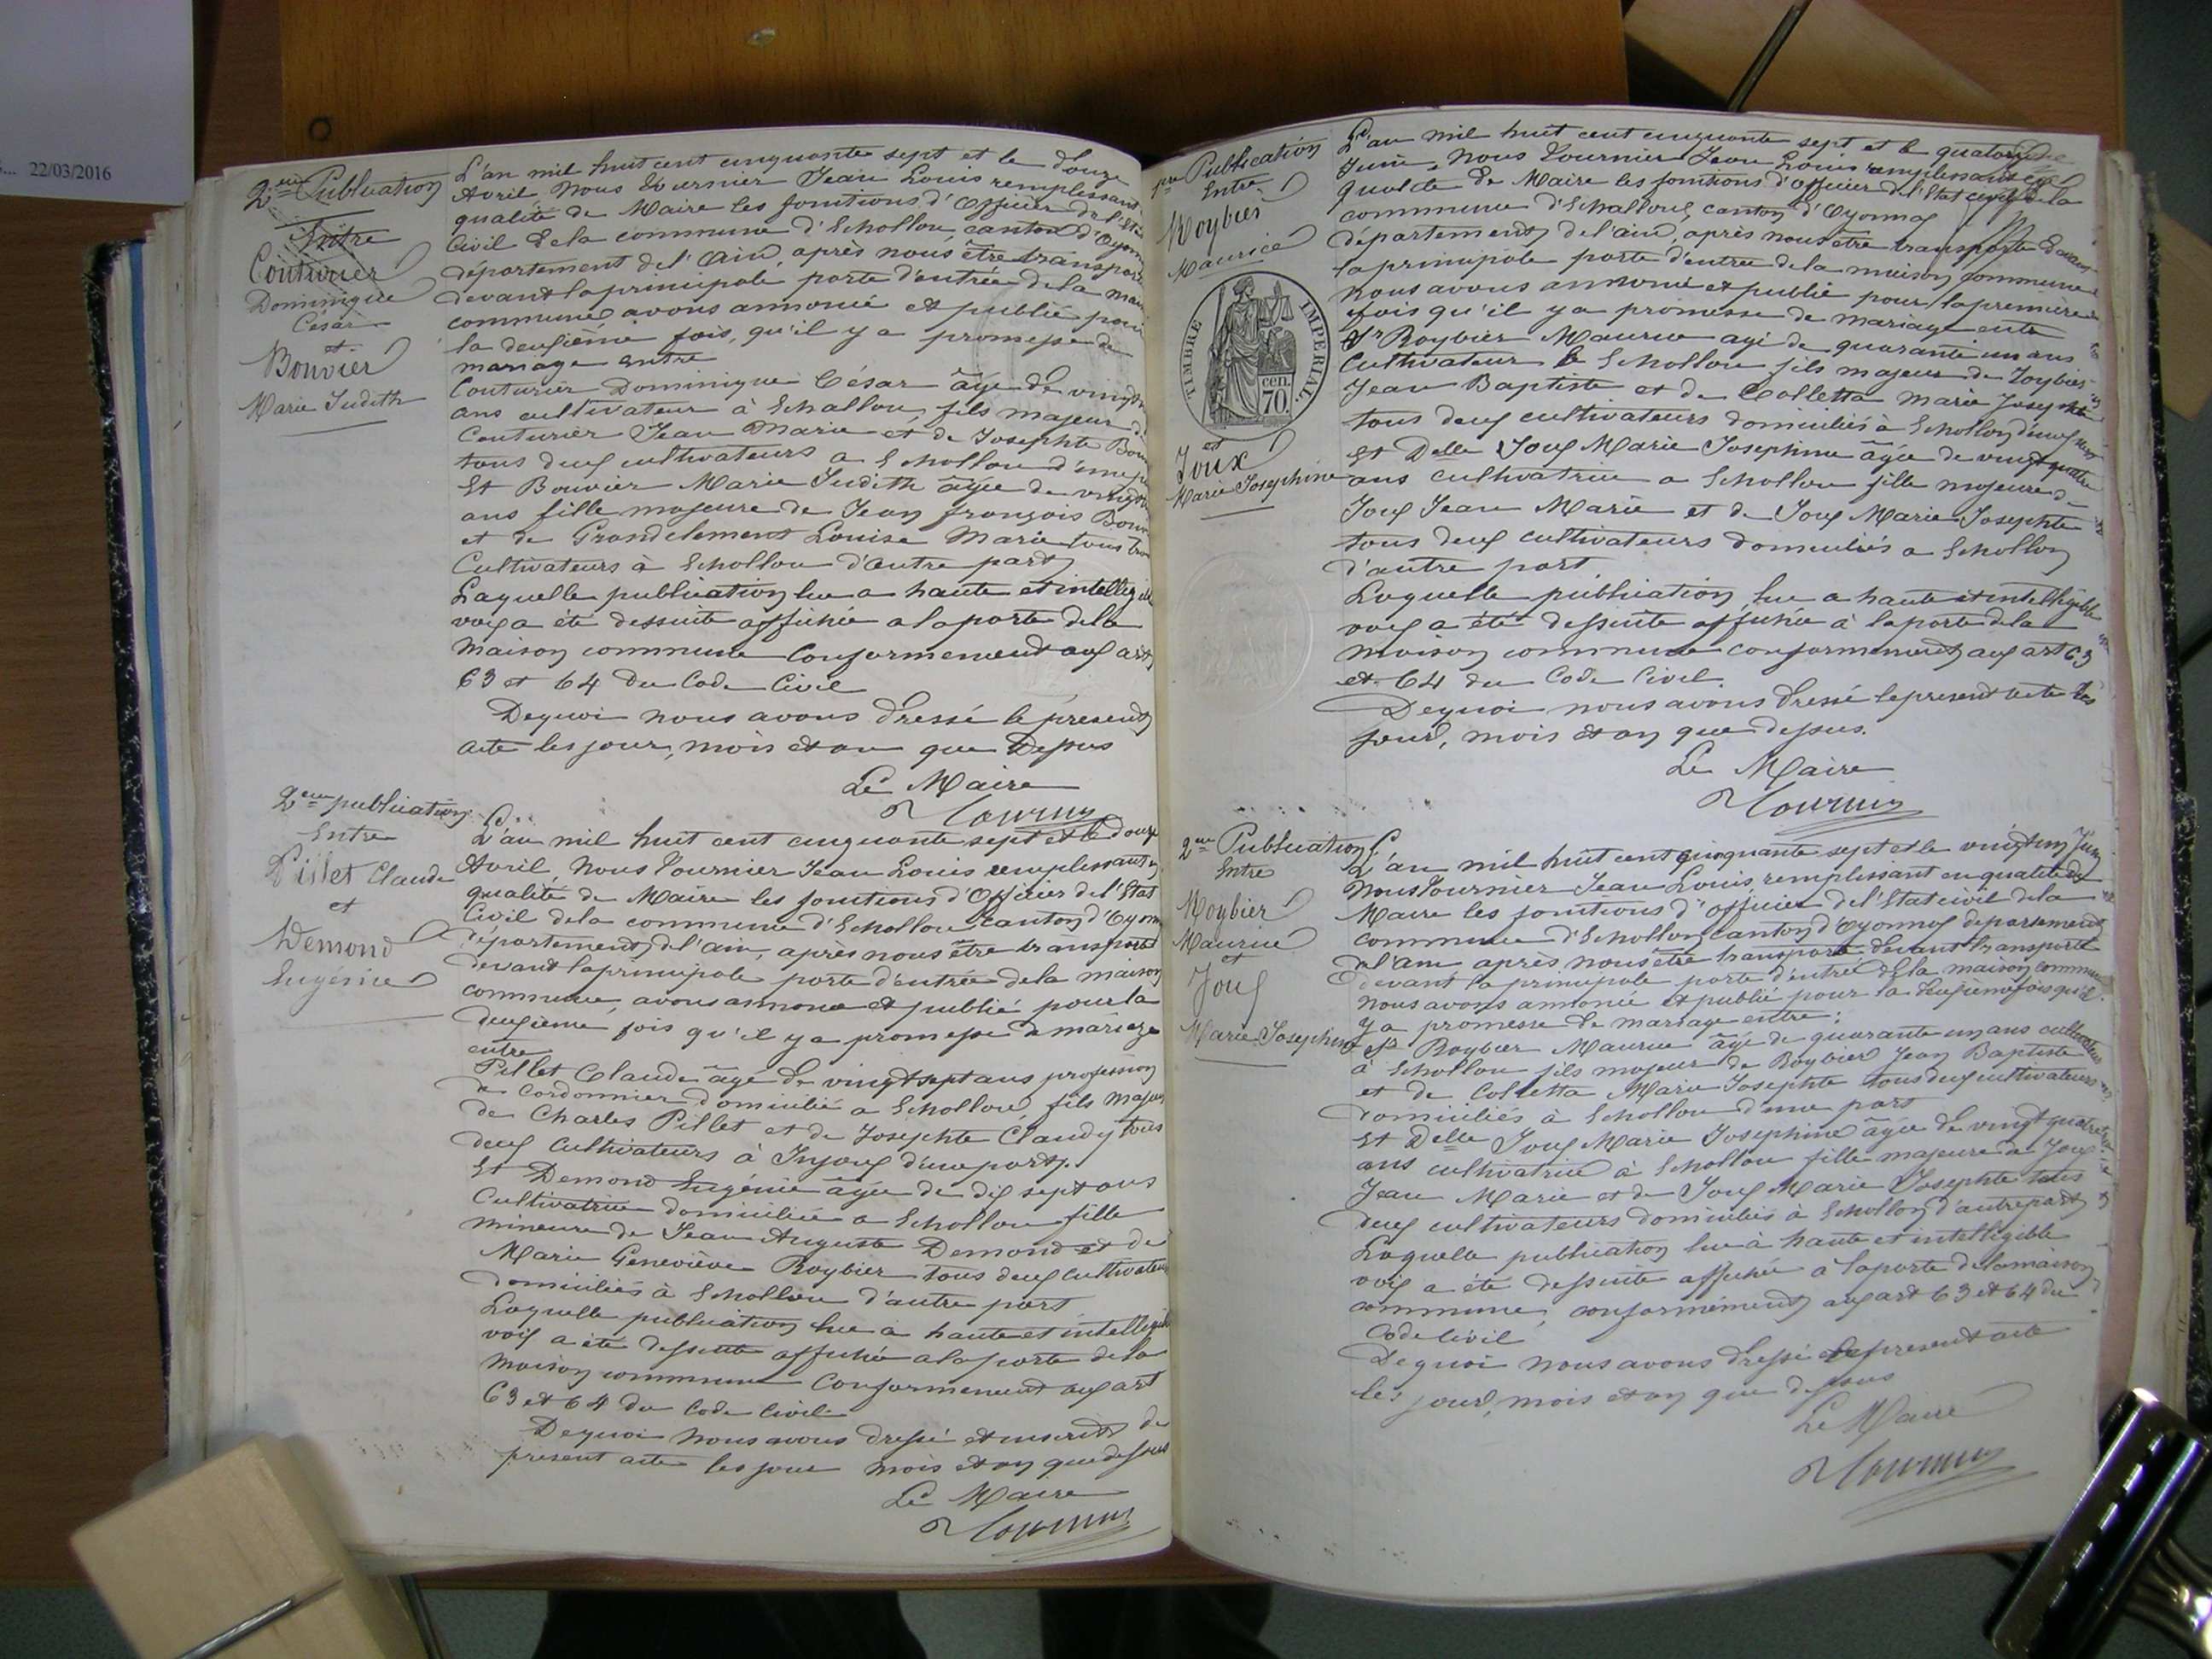 ... 22/03/2016
2eme Publication
Entre
Couturier
Dominique
César
et
Bouvier
Marie Judith
L'an mil huit cent cinquante sept et le douze
Avril Nous Tournier Jean Louis remplissant
qualité de Maire les fonctions d'Officier de l'Etat
Civil de la commune d'Echallon, canton d'Oyonn
département de l'Ain, après nous être transporté
devant la principale porte d'entrée de la mais
commune, avons annoncé et publié pour
la deuxième fois, qu'il y a promesse de
mariage entre
Couturier Dominique César âgé de vingt
ans cultivateur à Echallon, fils majeur de
Couturier Jean Marie et de Josephte Bou
tous deux cultivateurs a Echallon d'une p
Et Bouvier Marie Judith âgée de vingt
ans fille majeure de Jean françois Bouv
et de Grandclement Louise Marie tous
Cultivateurs à Echallon d'autre part
Laquelle publication lue a haute et intelligible
voix a été dessuite affichée a la porte de la
Maison commune Conformement aux art
63 et 64 du Code Civil
Dequoi nous avons dressé le présent
acte les jour, mois et an que Dessus
Le Maire
Tournier
2eme publication
Entre
Pillet Claude
et
Demond
Eugénie
L'an mil huit cent cinquante sept et le douze
Avril, Nous Tournier Jean Louis remplissant en
qualité de Maire les fonctions d'Officier de l'Etat
Civil de la commune d'Echallon canton d'Oyonn
département, de l'ain, après nous être transporté
devant la principale porte d'entrée de la maison
commune, avons annoncé et publié pour la
deuxième fois qu'il y a promesse de mariage
entre
Pillet Claude âgé de vingt sept ans profession
de cordonnier domicilié a Echallon, fils majeur
de Charles Pillet et de Josephte Claudy tous
deux cultivateurs à Injoux d'une part.
Et Demond Eugénie âgée de dix sept ans
Cultivatrice domiciliée a Echallon fille
mineure de Jean Auguste Demond et de
Marie Geneviève Roybier tous deux Cultivateurs
domiciliés à Echallon d'autre part
Laquelle publication lue à haute et intelligible
voix a été dessuite affichée a la porte de la
Maison commune Conformement aux art
63 et 64 du Code Civil
Dequoi Nous avons dressé et inscrit de
présent acte les jour mois et an que dessus
Le Maire
Tournier
1ere Publication
Entre
Roybier
Maurice
TIMBRE IMPERIAL
70 cen.
et
Joux
Marie Josephine
L'an mil huit cent cinquante sept et le quatorze
Juin, Nous Tournier Jean Louis remplissant en
qualité de Maire les fonctions d'officier de l'Etat civil de la
commune d'Echallon, canton d'Oyonnax
département de l'ain, après nous être transporté devant
la principale porte d'entrée de la maison commune
nous avons annoncé et publié pour la première
fois qu'il y a promesse de mariage entre
Sr Roybier Maurice agé de quarante un ans
Cultivateur à Echallon fils majeur de Roybier
Jean Baptiste et de Colletta Marie Josephte
tous deux cultivateurs domiciliés à Echallon d'une part
Et Delle Joux Marie Josephine âgée de vingt quatre
ans cultivatrice a Echallon fille majeure de
Joux Jean Marie et de Joux Marie Josephte
tous deux cultivateurs domiciliés a Echallon
d'autre part.
Laquelle publication, lue a haute et intelligible
voix a été dessuite affichée à la porte de la
maison commune conformement aux art 63
et 64 du Code Civil.
Dequoi nous avons dressé le présent acte les
jour, mois et an que dessus.
Le Maire
Tournier
2eme Publication
Entre
Roybier
Maurice
et
Joux
Marie Josephine
L'an mil huit cent cinquante sept et le vingt un Juin
Nous Tournier Jean Louis, remplissant en qualité de
Maire les fonctions d'officier de l'Etat civil de la
commune d'Echallon canton d'Oyonnax departement
de l'ain après nous être transporté devant transporté
devant la principale porte d'entrée de la maison commune
nous avons annoncé et publié pour la deuxième fois qu'il
y a promesse de mariage entre:
Sr Roybier Maurice âgé de quarante un ans cultivateur
à Echallon fils majeur de Roybier Jean Baptiste
et de Colletta Marie Josephte tous deux cultivateurs
domiciliés à Echallon d'une part
Et Delle Joux Marie Josephine âgée de vingt quatre
ans cultivatrice à Echallon fille majeure de Joux
Jean Marie et de Joux Marie Josephte tous
deux cultivateurs domiciliés à Echallon d'autre part
Laquelle publication lue à haute et intelligible
voix a été dessuite affichée à la porte de la maison
commune, conformément aux art 63 et 64 du
Code Civil
Dequoi nous avons dressé le présent acte
les jour, mois et an que dessus
Le Maire
Tournier